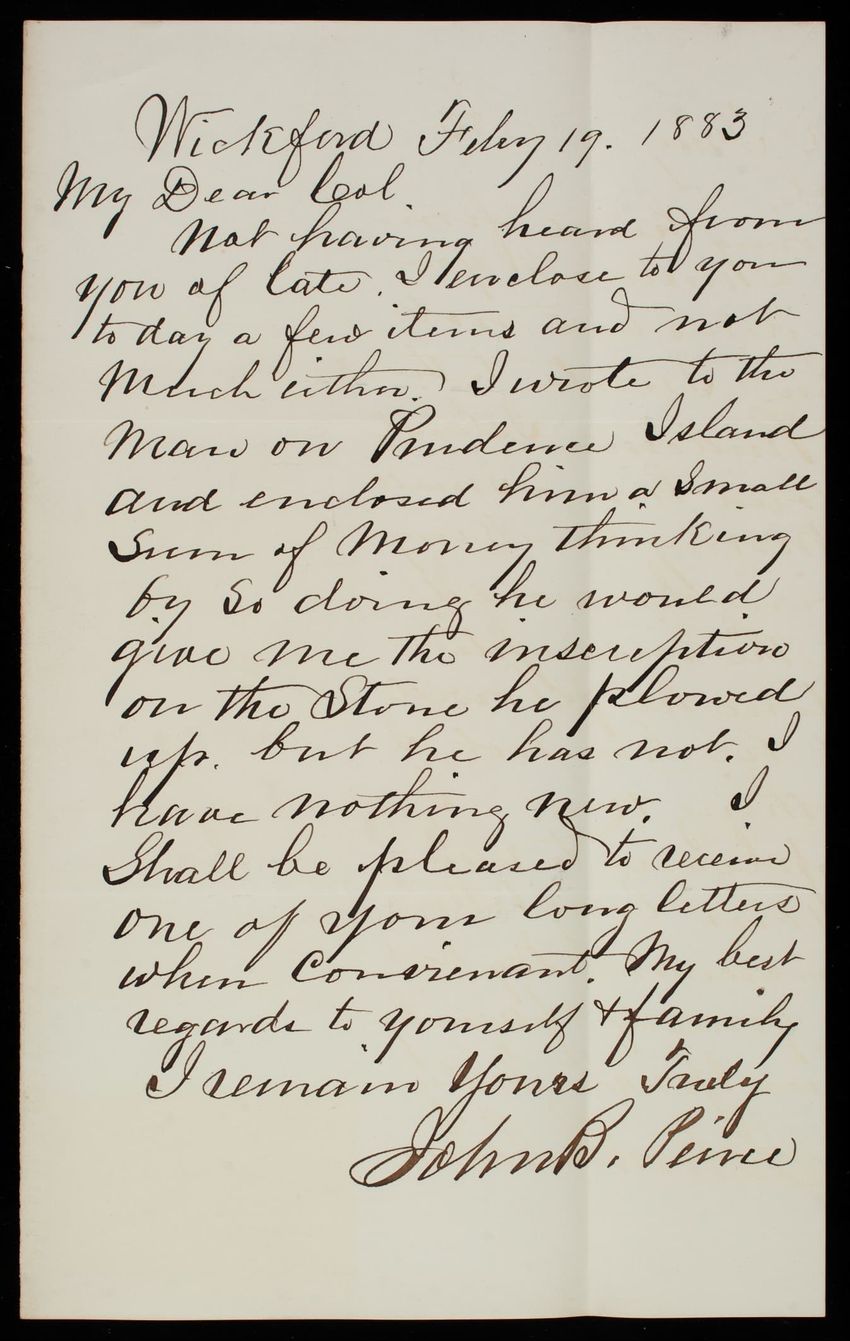 Wickford Feby 19. 1883
My Dear Col.
Not having heard from
you of late. I enclose to you
to day a few items and not
much either. I wrote to the
man on Prudence Island
and enclosed him a small
sum of money thinking
by so doing he would
give me the inscription
on the Stone he plowed
up. but he has not. I
have nothing new. I
Shall be pleased to receive
one of your long letters
when Convienant. My best
regards to yourself & family
I remain Yours Truly
John B. Peirce